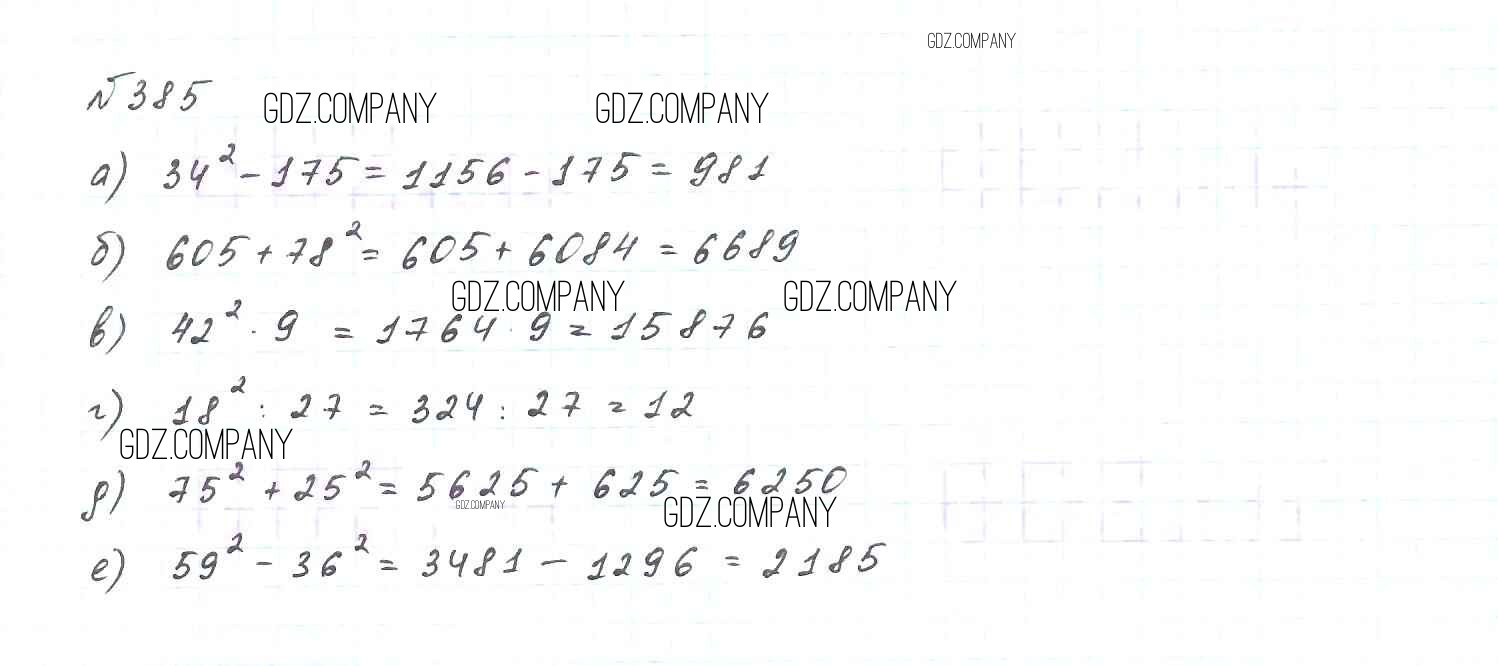 GDZ.COMPANY
№385
GDZ.COMPANY GDZ.COMPANY
а) 34² - 175 = 1156 - 175 = 981
б) 605 + 78² = 605 + 6084 = 6689
GDZ.COMPANY GDZ.COMPANY
в) 42² · 9 = 1764 · 9 = 15876
г) 18² : 27 = 324 : 27 = 12
GDZ.COMPANY
д) 75² + 25² = 5625 + 625 = 6250
GDZ.COMPANY GDZ.COMPANY
е) 59² - 36² = 3481 - 1296 = 2185